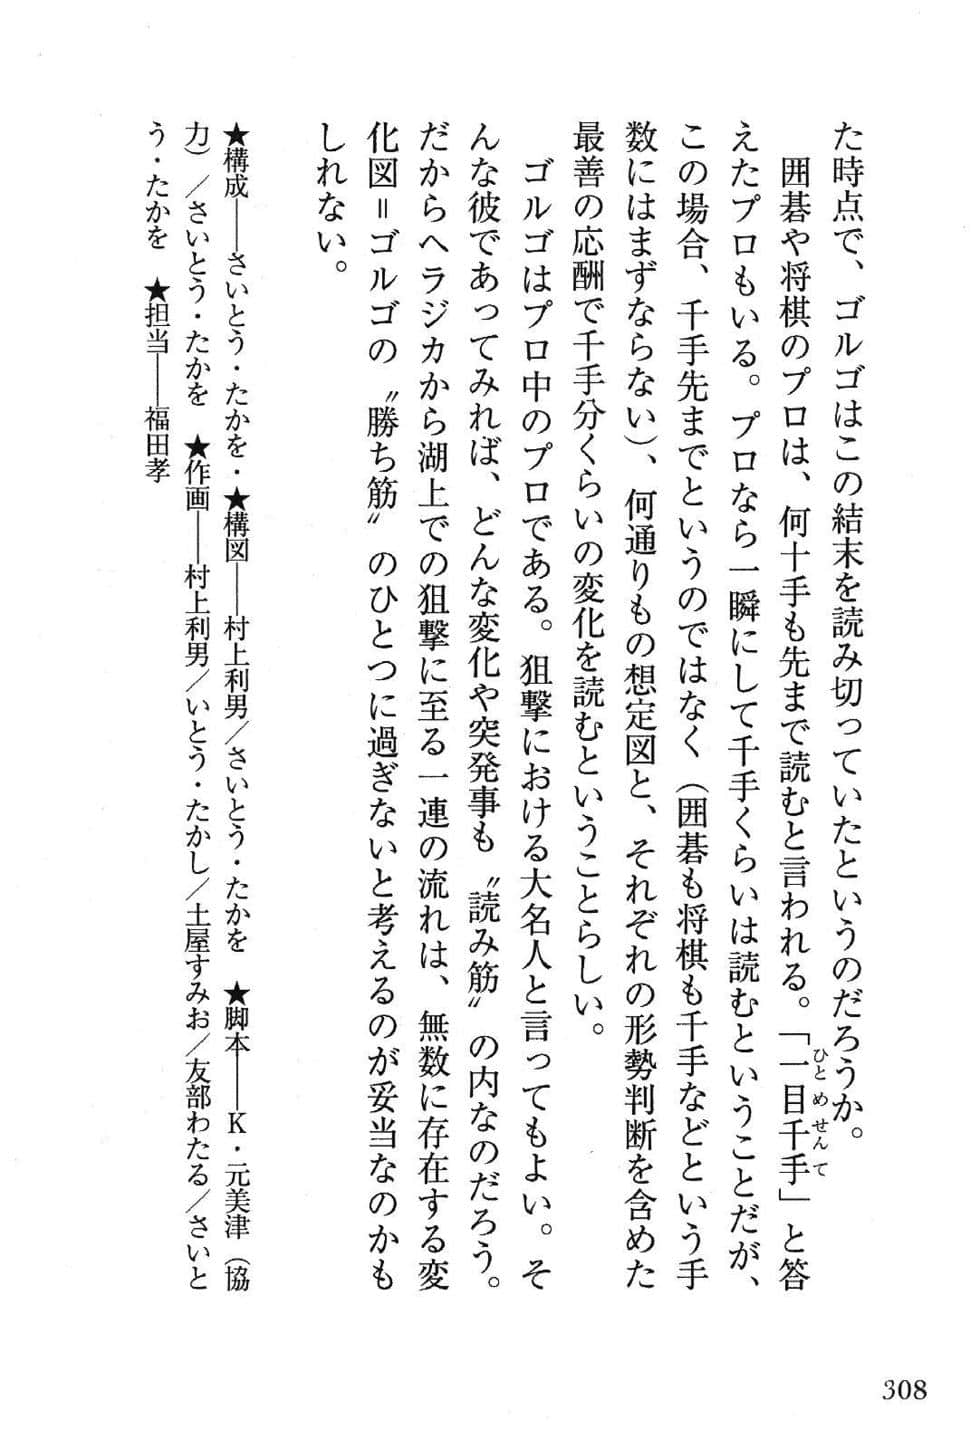 た時点で、ゴルゴはこの結末を読み切っていたというのだろうか。
囲碁や将棋のプロは、何十手も先まで読むと言われる。「一目千手」と答
ひとめせんて
えたプロもいる。プロなら一瞬にして千手くらいは読むということだが、
この場合、千手先までというのではなく（囲碁も将棋も千手などという手
数にはまずならない）、何通りもの想定図と、それぞれの形勢判断を含めた
最善の応酬で千手分くらいの変化を読むということらしい。
ゴルゴはプロ中のプロである。狙撃における大名人と言ってもよい。そ
んな彼であってみれば、どんな変化や突発事も〝読み筋〟の内なのだろう。
だからヘラジカから湖上での狙撃に至る一連の流れは、無数に存在する変
化図＝ゴルゴの〝勝ち筋〟のひとつに過ぎないと考えるのが妥当なのかも
しれない。
★構成――さいとう・たかを・★構図――村上利男／さいとう・たかを　★脚本――K・元美津（協
力）／さいとう・たかを　★作画――村上利男／いとう・たかし／土屋すみお／友部わたる／さいと
う・たかを　★担当――福田孝
308